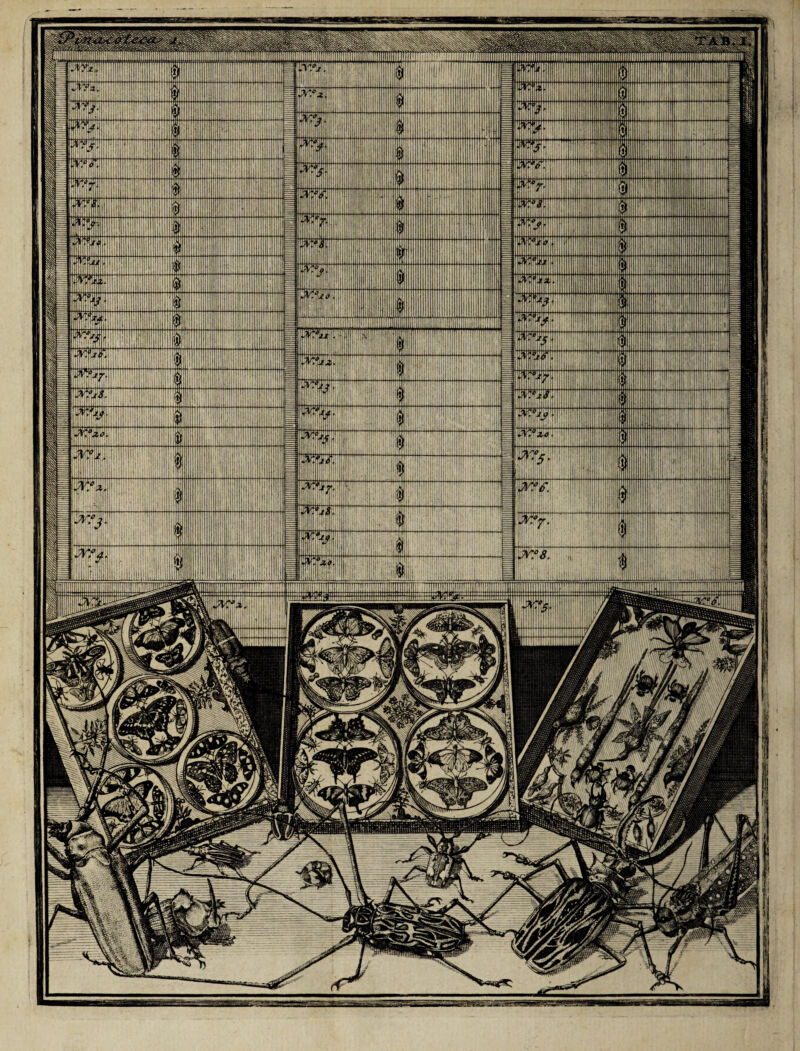 Pinacoteca 1.
TAB. I.
N.º 1.
N.º 2.
N.º 3.
N.º 4.
N.º 5.
N.º 6.
N.º 7.
N.º 8.
N.º 9.
N.º 10.
N.º 11.
N.º 12.
N.º 13.
N.º 14.
N.º 15.
N.º 16.
N.º 17.
N.º 18.
N.º 19.
N.º 20.
N.º 1.
N.º 2.
N.º 3.
N.º 4.
N.º 1.
N.º 2.
N.º 3.
N.º 4.
N.º 5.
N.º 6.
N.º 7.
N.º 8.
N.º 9.
N.º 10.
N.º 11.
N.º 12.
N.º 13.
N.º 14.
N.º 15.
N.º 16.
N.º 17.
N.º 18.
N.º 19.
N.º 20.
N.º 1.
N.º 2.
N.º 3.
N.º 4.
N.º 5.
N.º 6.
N.º 7.
N.º 8.
N.º 9.
N.º 10.
N.º 11.
N.º 12.
N.º 13.
N.º 14.
N.º 15.
N.º 16.
N.º 17.
N.º 18.
N.º 19.
N.º 20.
N.º 5.
N.º 6.
N.º 7.
N.º 8.
N.º 1. N.º 2. N.º 3 N.º 4. N.º 5. N.º 6.